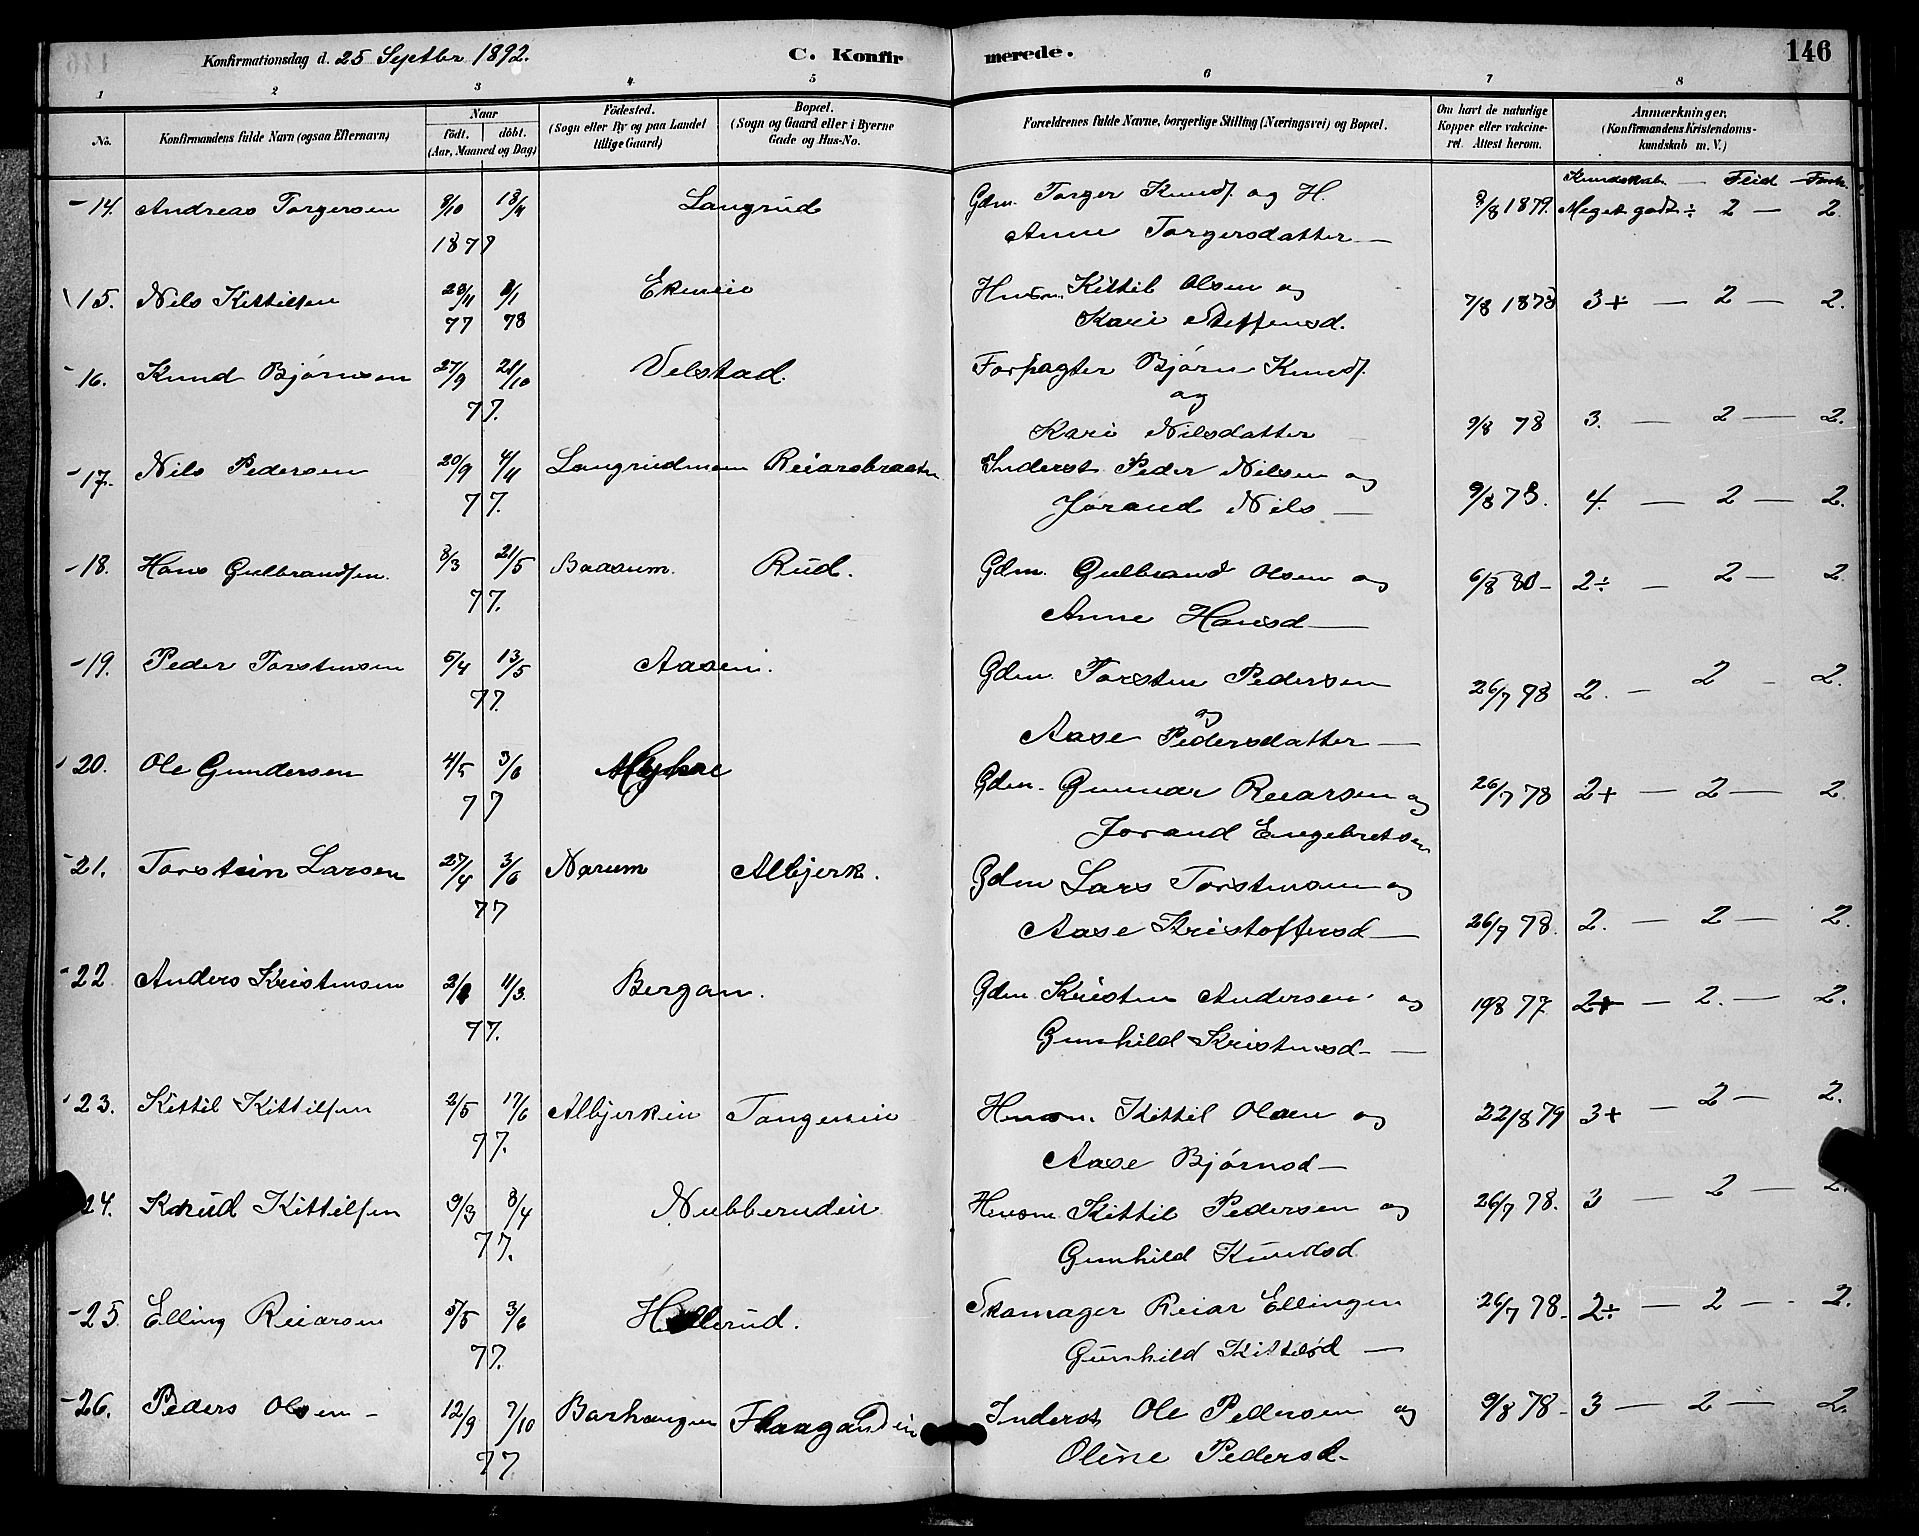 Konfirmationsdag d. 25 Septbr 1892. C. Konfirmerede. 146
1 2 3 4 5 6 7 8
No. Konfirmandens fulde Navn (ogsaa Efternavn) Naar födt. döbt. (Aar, Maaned og Dag) Födested. (Sogn eller By og paa Landet tillige Gaard) Bopæl. (Sogn og Gaard eller i Byerne Gade og Hus-No. Forældrenes fulde Navne, borgerlige Stilling (Næringsvei) og Bopæl. Om havt de naturlige Kopper eller vakcineret. Attest herom. Anmærkninger. (Konfirmandens Kristendomskundskab m. V.)
Kundskab — Flid —
14. Andreas Torgersen 9/10 Langrud Gdm. Torger Knuds. og H. 8/8 1879. Meget godt ÷ 2 — 2.
Anne Torgersdatter —
15. Nils Kittilsen 23/11 Ekineie Husm. Kittil Olsen og 7/8 1878 3+ — 2 — 2.
77 78 Kari Steffensd.
16. Knud Bjørnsen 27/9 21/10 Velstad. Forpagter Bjørn Knuds.
77. og
Kari Nilsdatter 9/8 78 3. — 2 — 2.
17. Nils Pedersen 20/9 4/11 Reiarsbraaten Inderst Peder Nilsen og
77. Jørand Nils — 9/8 78. 4. — 2 — 2.
18. Hans Gulbrandsen. 8/3 21/5 Baasum. Rud. Gdm. Gulbrand Olsen og 2÷ — 2 — 2.
77. Anne Hansd —
19. Peder Torstensen 5/4 13/5 Aasen. Gdm. Torsten Pedersen 26/7 78 2. — 2 - 2.
77. og
Aase Pedersdatter —
20. Ole Gundersen 4/5 3/6 Gdm. Gunnar Reiarsen og 26/7 78 2+ — 2 — 2.
77 Jorand Engebretsen
21. Torstein Larsen 27/4 3/6 Narum Albjerk. Gdm Lars Torstensen og
77 Aase Kristoffersd — 26/7 78. 2. — 2 — 2.
22. Anders Kristensen 4/3 Bergan. Gdm. Kristen Andersen og 19/8 77. 2+ — 2. — 2.
77. Gunhild Kristensd —
23. Kittil Kittilsen 2/5 17/6 Albjerkin Tangeneie Husm. Kittil Olsen og 22/8 79 3+ — 2 — 2.
77. Aase Bjørnsd —
24. Knud Kittilsen 9/3 8/4 Nubberudeie Husm Kittil Pedersen og 26/7 78. 3 — 2 — 2.
77. Gunhild Knudsd.
25 Elling Reiarsen 5/5 3/6 Hellerud. Skomager Reiar Ellingsen 26/7 78. 2÷ — 2 — 2.
77. Gunhild Kittilsd —
26. Peders Olsen — 12/9 7/10 Inderst Ole Pedersen og 9/8 78 — 3 — 2 — 2.
77 Oline Pedersd.